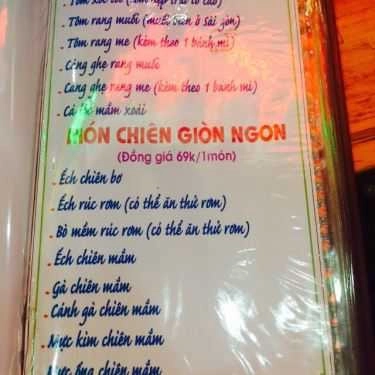 - Tôm rang muối (muối biển ở sài gòn)
- Tôm rang me (kèm theo 1 bánh mì)
- Càng ghẹ rang muối
- Càng ghẹ rang me (kèm theo 1 bánh mì)
- Cá lóc mắm xoài
MÓN CHIÊN GIÒN NGON
(Đồng giá 69k/1món)
- Ếch chiên bơ
- Ếch rúc rơm (có thể ăn thử rơm)
- Bò mềm rúc rơm (có thể ăn thử rơm)
- Ếch chiên mắm
- Gà chiên mắm
- Cánh gà chiên mắm
- Mực kim chiên mắm
- Mực ống chiên mắm